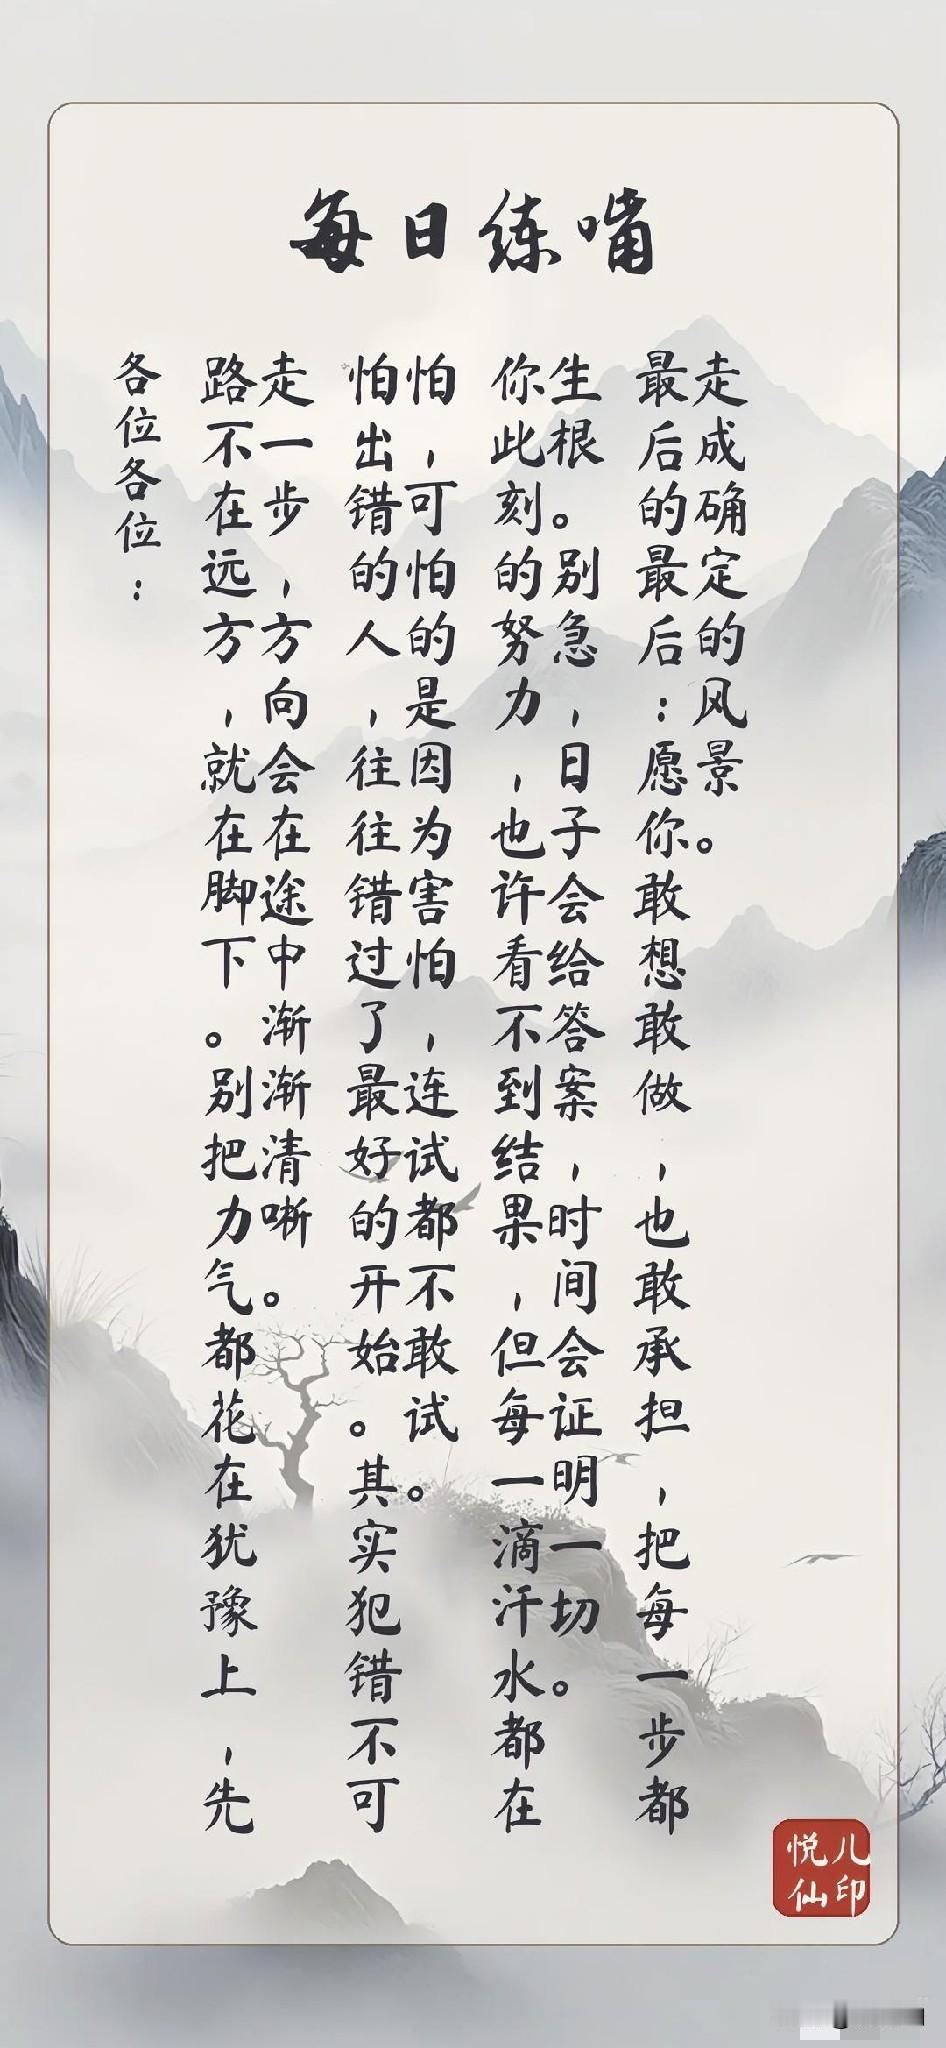 每日练嘴
各位各位：
路不在远方，就在脚下。别把力气都花在犹豫上，先
走一步，方向会在途中渐渐清晰。
怕出错的人，往往错过了最好的开始。其实犯错不可
怕，可怕的是因为害怕，连试都不敢试。
你此刻的努力，也许看不到结果，但每一滴汗水都在
生根。别急，日子会给答案，时间会证明一切。
最后的最后：愿你敢想敢做，也敢承担，把每一步都
走成确定的风景。
悦儿
仙印